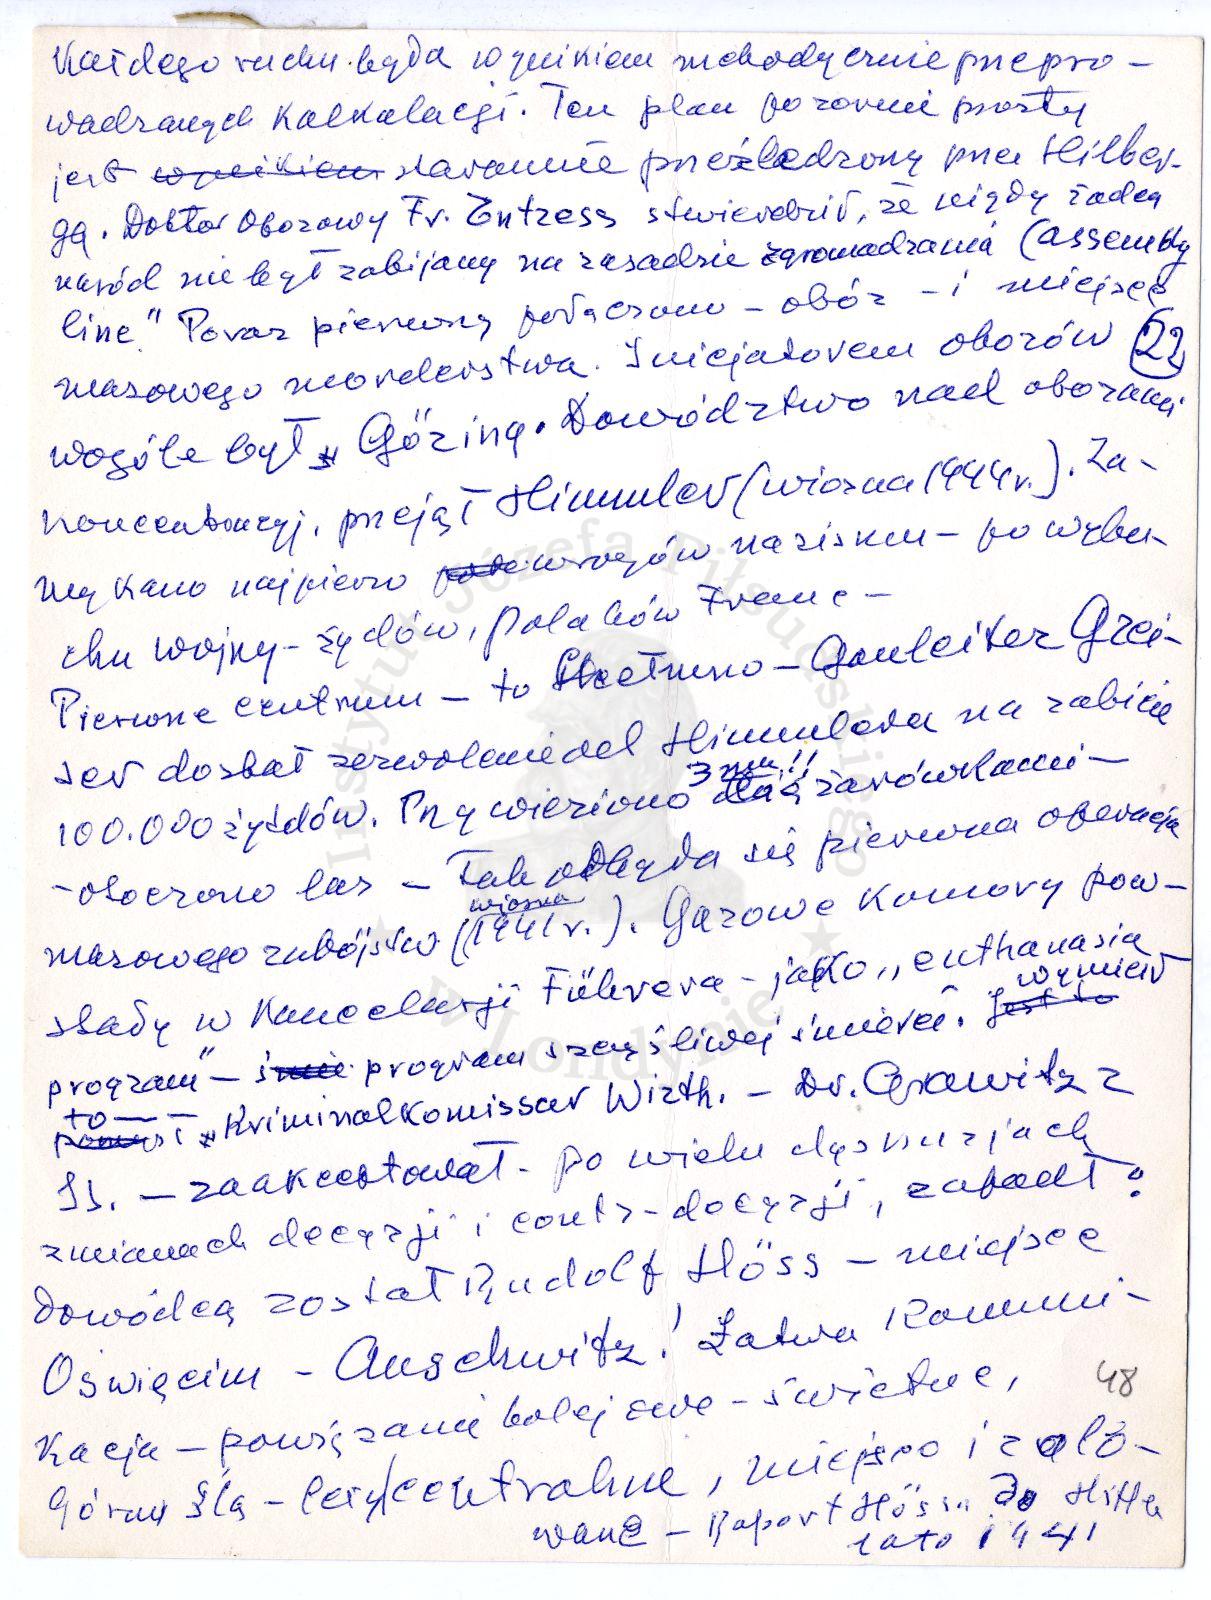 Każdego ruchu będą wynikiem metodycznie przepro-
wadzanych kalkulacji. Ten plan pozornie prosty
jest wynikiem starannie prześledzony przez Hilber-
ga. Doktor obozowy Fr. Entress stwierdził, że nigdy żaden
naród nie był zabijany na zasadzie zgromadzania (assembly
line" Po raz pierwszy połączono – obóz – i miejsce
masowego morderstwa. Inicjatorem obozów (22)
wogóle był Göring. Dowództwo nad obozami
koncentracyj. przejął Himmler (wiosna 1944 r.). Za-
mykano najpierw wrogów nazismu – po wybu-
chu wojny – żydów, polaków Franc –
Pierwsze centrum – to Chełmno – Gauleiter Grei-
ser dostał zezwolenie od Himmlera na zabicie
100.000 żydów. Przywieziono 3 żarówkami –
– otoczono las – Tak odbyła się pierwsza operacja
masowego zabójstw (wiosna 1941 r.). Gazowe Komory pow-
stały w Kancelarji Führera – jako „euthanasia
program" – program szczęśliwej śmierci. jest to wymiar
to – Kriminalkomissar Wirth. – Dr. Grawitz z
SS. – zaakceptował – po wielu dyskusjach
zmianach decyzji i contr-decyzji, zapadł:
Dowódcą został Rudolf Höss – miejsce
Oświęcim – Auschwitz! Łatwa Kommuni-
kacja – powiązania kolejowe – świetne, 48
Górny Śląs – centralne, miejsce izolo-
wane – Raport Hössa do Hitle
lato 1941
Instytut Józefa Piłsudskiego
w Londynie